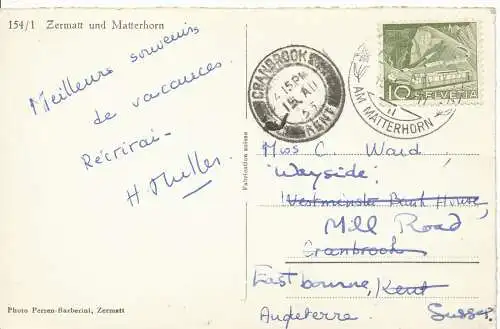 154/1 Zermatt und Matterhorn
Meilleurs souvenirs
de vacances.
Récrirai-
H. Muller
Photo Perren-Barberini, Zermatt
Fabrication suisse
CRANBROOK
2.15PM
KENT
10
HELVETIA
AM MATTERHORN
Miss C. Ward
"Wayside",
Westminster Bank House,
Mill Road
Cranbrook
Eastbourne, Kent
Angleterre. Sussex.